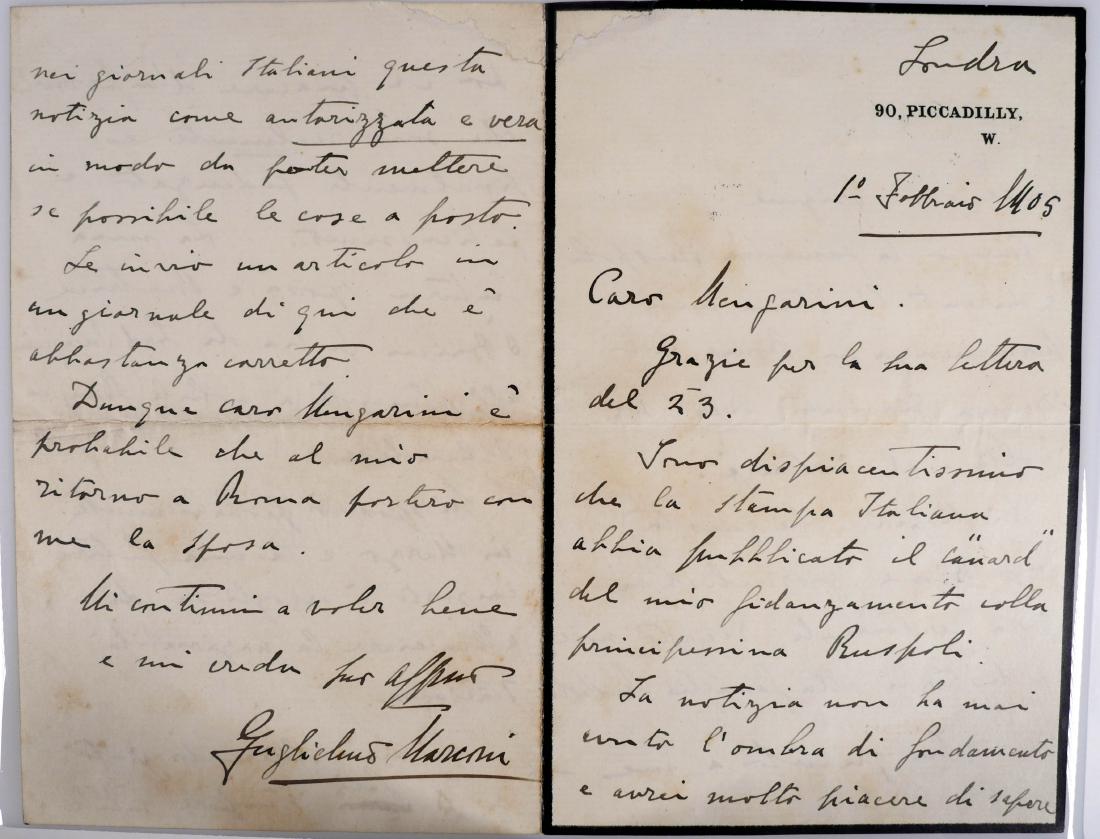 Londra
90, PICCADILLY,
W.
1º Febbraio 1905
Caro Mengarini.
Grazie per la sua lettera
del 23.
Sono dispiacentissimo
che la stampa Italiana
abbia pubblicato il "canard"
del mio fidanzamento colla
principessina Ruspoli.
La notizia non ha mai
avuto l'ombra di fondamento
e avrei molto piacere di sapere
nei giornali Italiani questa
notizia come autorizzata e vera
in modo da poter mettere
se possibile le cose a posto.
Le invio un articolo in
un giornale di qui che è
abbastanza corretto.
Dunque caro Mengarini è
probabile che al mio
ritorno a Roma porterò con
me la sposa.
Mi continui a voler bene
e mi creda suo affmo
Guglielmo Marconi